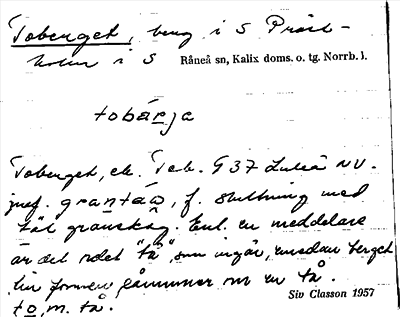 Toberget, berg i S Präst-
holm i S Råneå sn, Kalix doms. o. tg. Norrb. l.
tobárja
Toberget, ek. T.eb. 937 Luleå NV.
jmf. grantáa, f. sluttning med
tät granskog. Enl. en meddelare
är det ordet "tå", som ingår, emedan berget
till formen påminner om en tå.
to, m. tå.
Siv Classon 1957